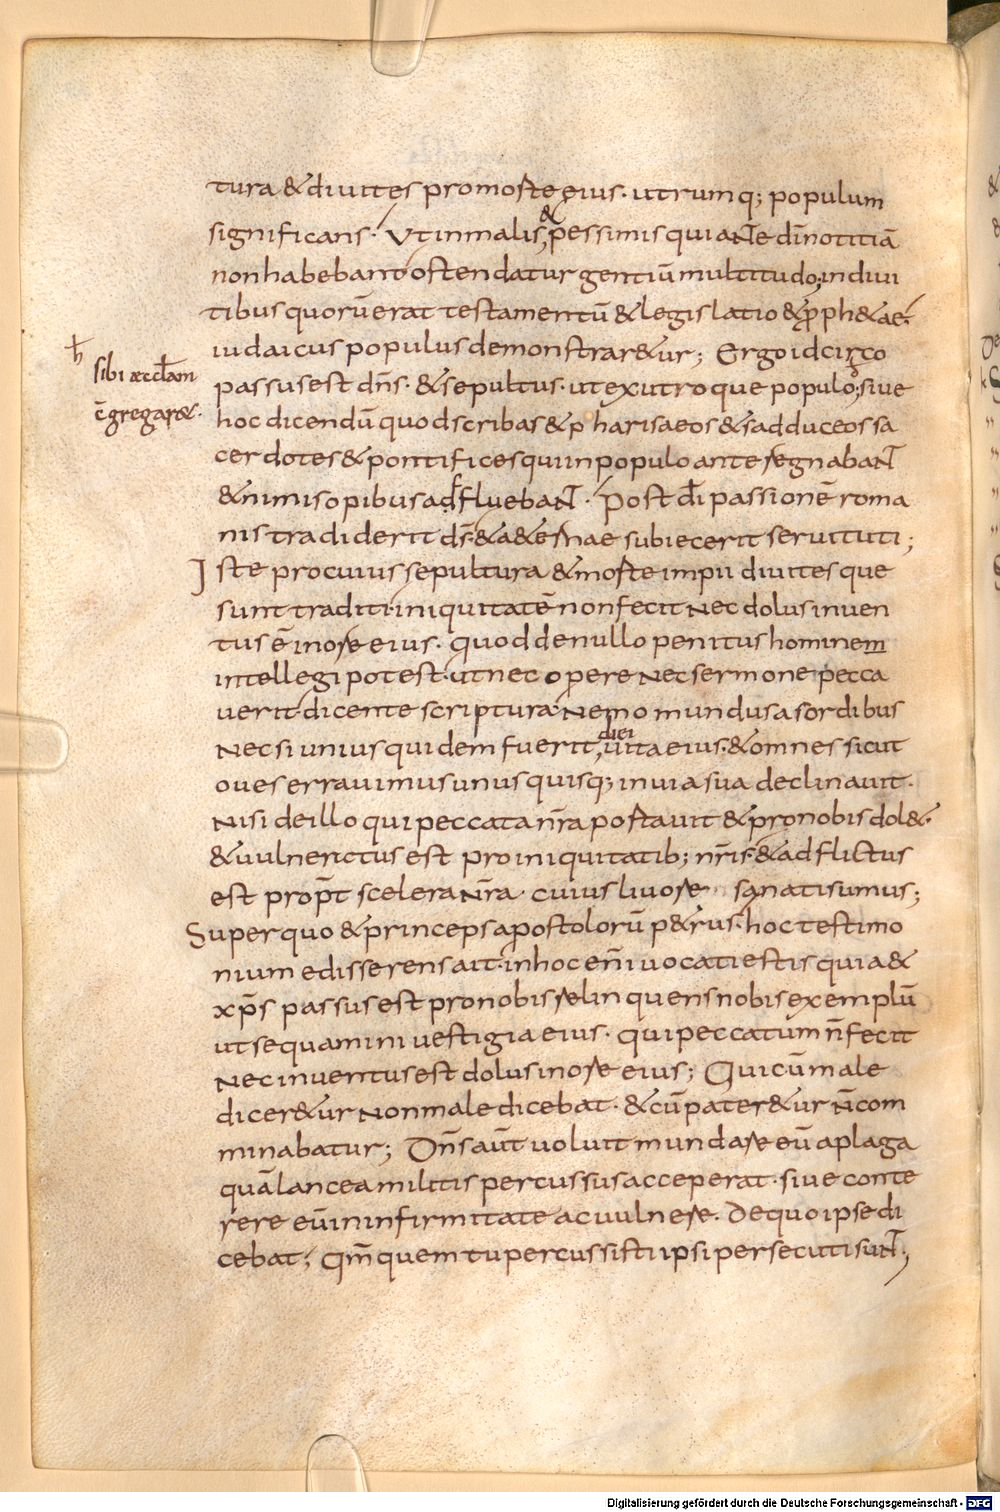 tura & diuites pro morte eius· utrumq; populum
significans· Ut in malis & pessimis qui ante dn̄i notitiā
non habebant ostendatur gentiū multitudo; in diui
tibus quorū erat testamentū & legis latio & p̄ph&ae·
iudaicus populus demonstrar&ur; Ergo idcirco
h̄
sibi æccl̄am
c̄gregar&·
passus est dn̄s· & sepultus· ut ex utroque populo; siue
hoc dicendū quod scribas & pharisaeos & sadduceos sa
cerdotes & pontifices qui in populo ante regnabant
& nimis opibus adfluebant· Post dn̄i passionē roma
nis tradiderit ds̄· & a&ernae subiecerit seruituti;
Iste pro cuius sepultura & morte impii diuitesque
sunt traditi· iniquitatē non fecit nec dolus inuen
tus ē in ore eius· quod de nullo penitus hominem
intellegi potest· ut nec opere nec sermone pecca
uerit· dicente scriptura· Nemo mundus a sordibus
nec si unius quidem fuerit diei uita eius· & omnes sicut
oues errauimus unusquisq; in uia sua declinauit·
Nisi de illo qui peccata nr̄a portauit & pro nobis dol&·
& uulneratus est pro iniquitatib; nr̄is· & adflictus
est propt̄ scelera nr̄a· cuius liuore sanati sumus;
Super quo & princeps apostolorū p&rus· hoc testimo
nium edisserens ait· in hoc en̄i uocati estis quia &
xp̄s passus est pro nobis relinquens nobis exemplū
ut sequamini uestigia eius· qui peccatum n̄ fecit
nec inuentus est dolus in ore eius; Qui cū male
dicer&ur non maledicebat· & cū pater&ur n̄ com
minabatur; Dn̄s aūt uoluit mundare eū a plaga
quā lancea militis percussus acceperat· siue conte
rere eū in infirmitate ac uulnere· De quo ipse di
cebat; Qm̄ quem tu percussisti ipsi persecuti sunt;
Digitalisierung gefördert durch die Deutsche Forschungsgemeinschaft - DFG